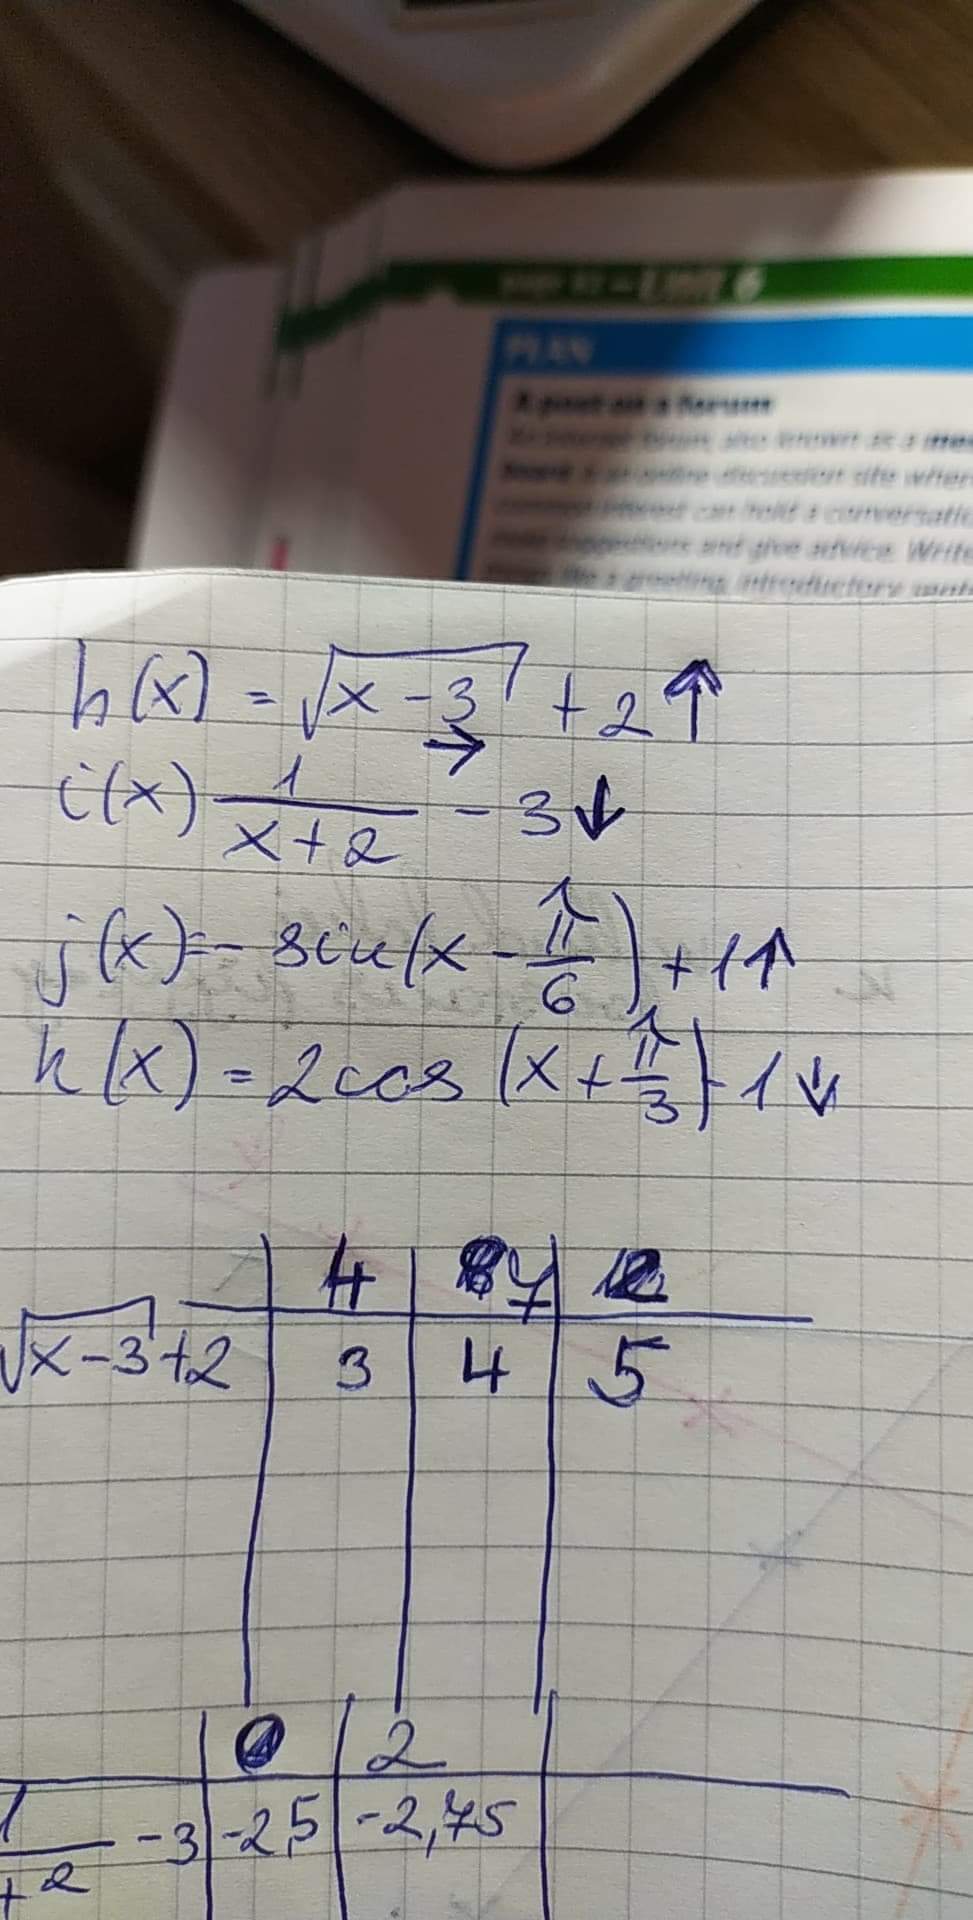 PLAN
A post on a forum
An internet forum, also known as a
board is an online discussion site where
common interest can hold a conversatio
make suggestions and give advice. Write
like a greeting, introductory
h(x) = √(x-3) + 2 ↑
→
i(x) 1/(x+2) - 3 ↓
j(x) = - sin(x - π/6) + 1 ↑
k(x) = 2cos (x + π/3) - 1 ↓
4 7 12
√(x-3)+2 3 4 5
0 2
1/+2 -3 -2,5 -2,75